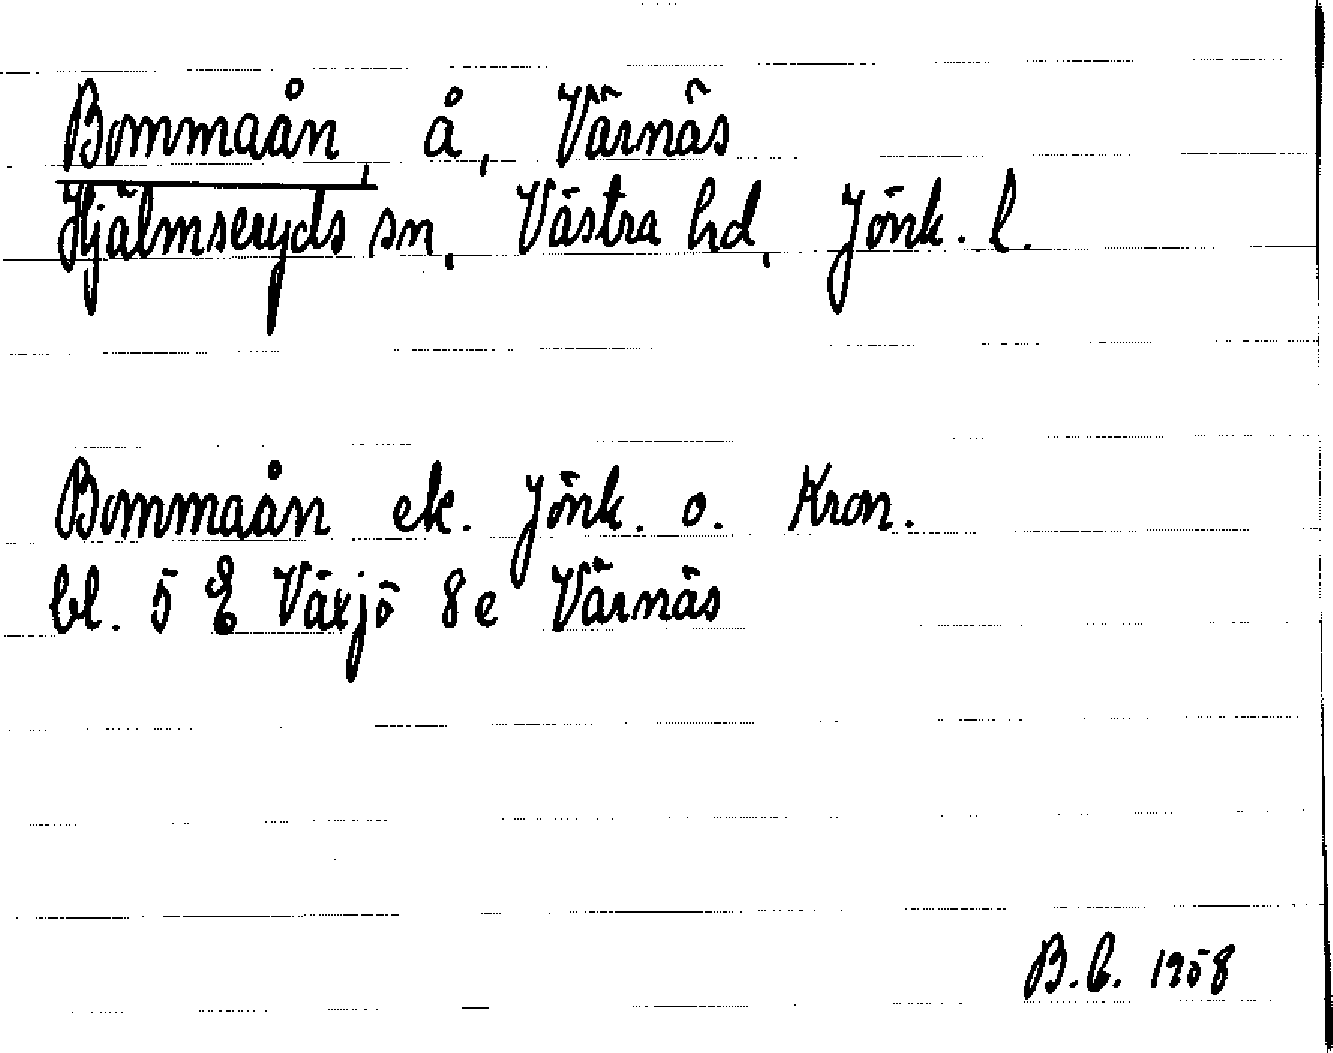 Bommaån, å, Värnäs
Hjälmseryds sn, Västra hd, Jönk. l.
Bommaån ek. Jönk. o. Kron.
bl. 5 E Växjö 8 e Värnäs
B.C. 1958